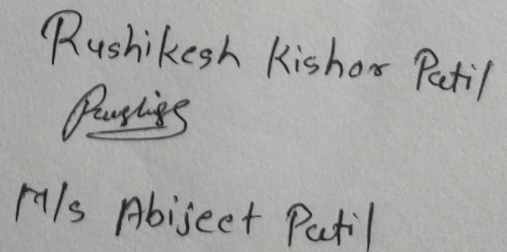 Rushikesh Kishor Patil
M/s Abijeet Patil